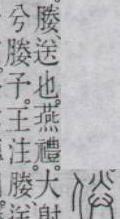 媵、送也。燕禮。大射
兮媵子。王注。媵、送